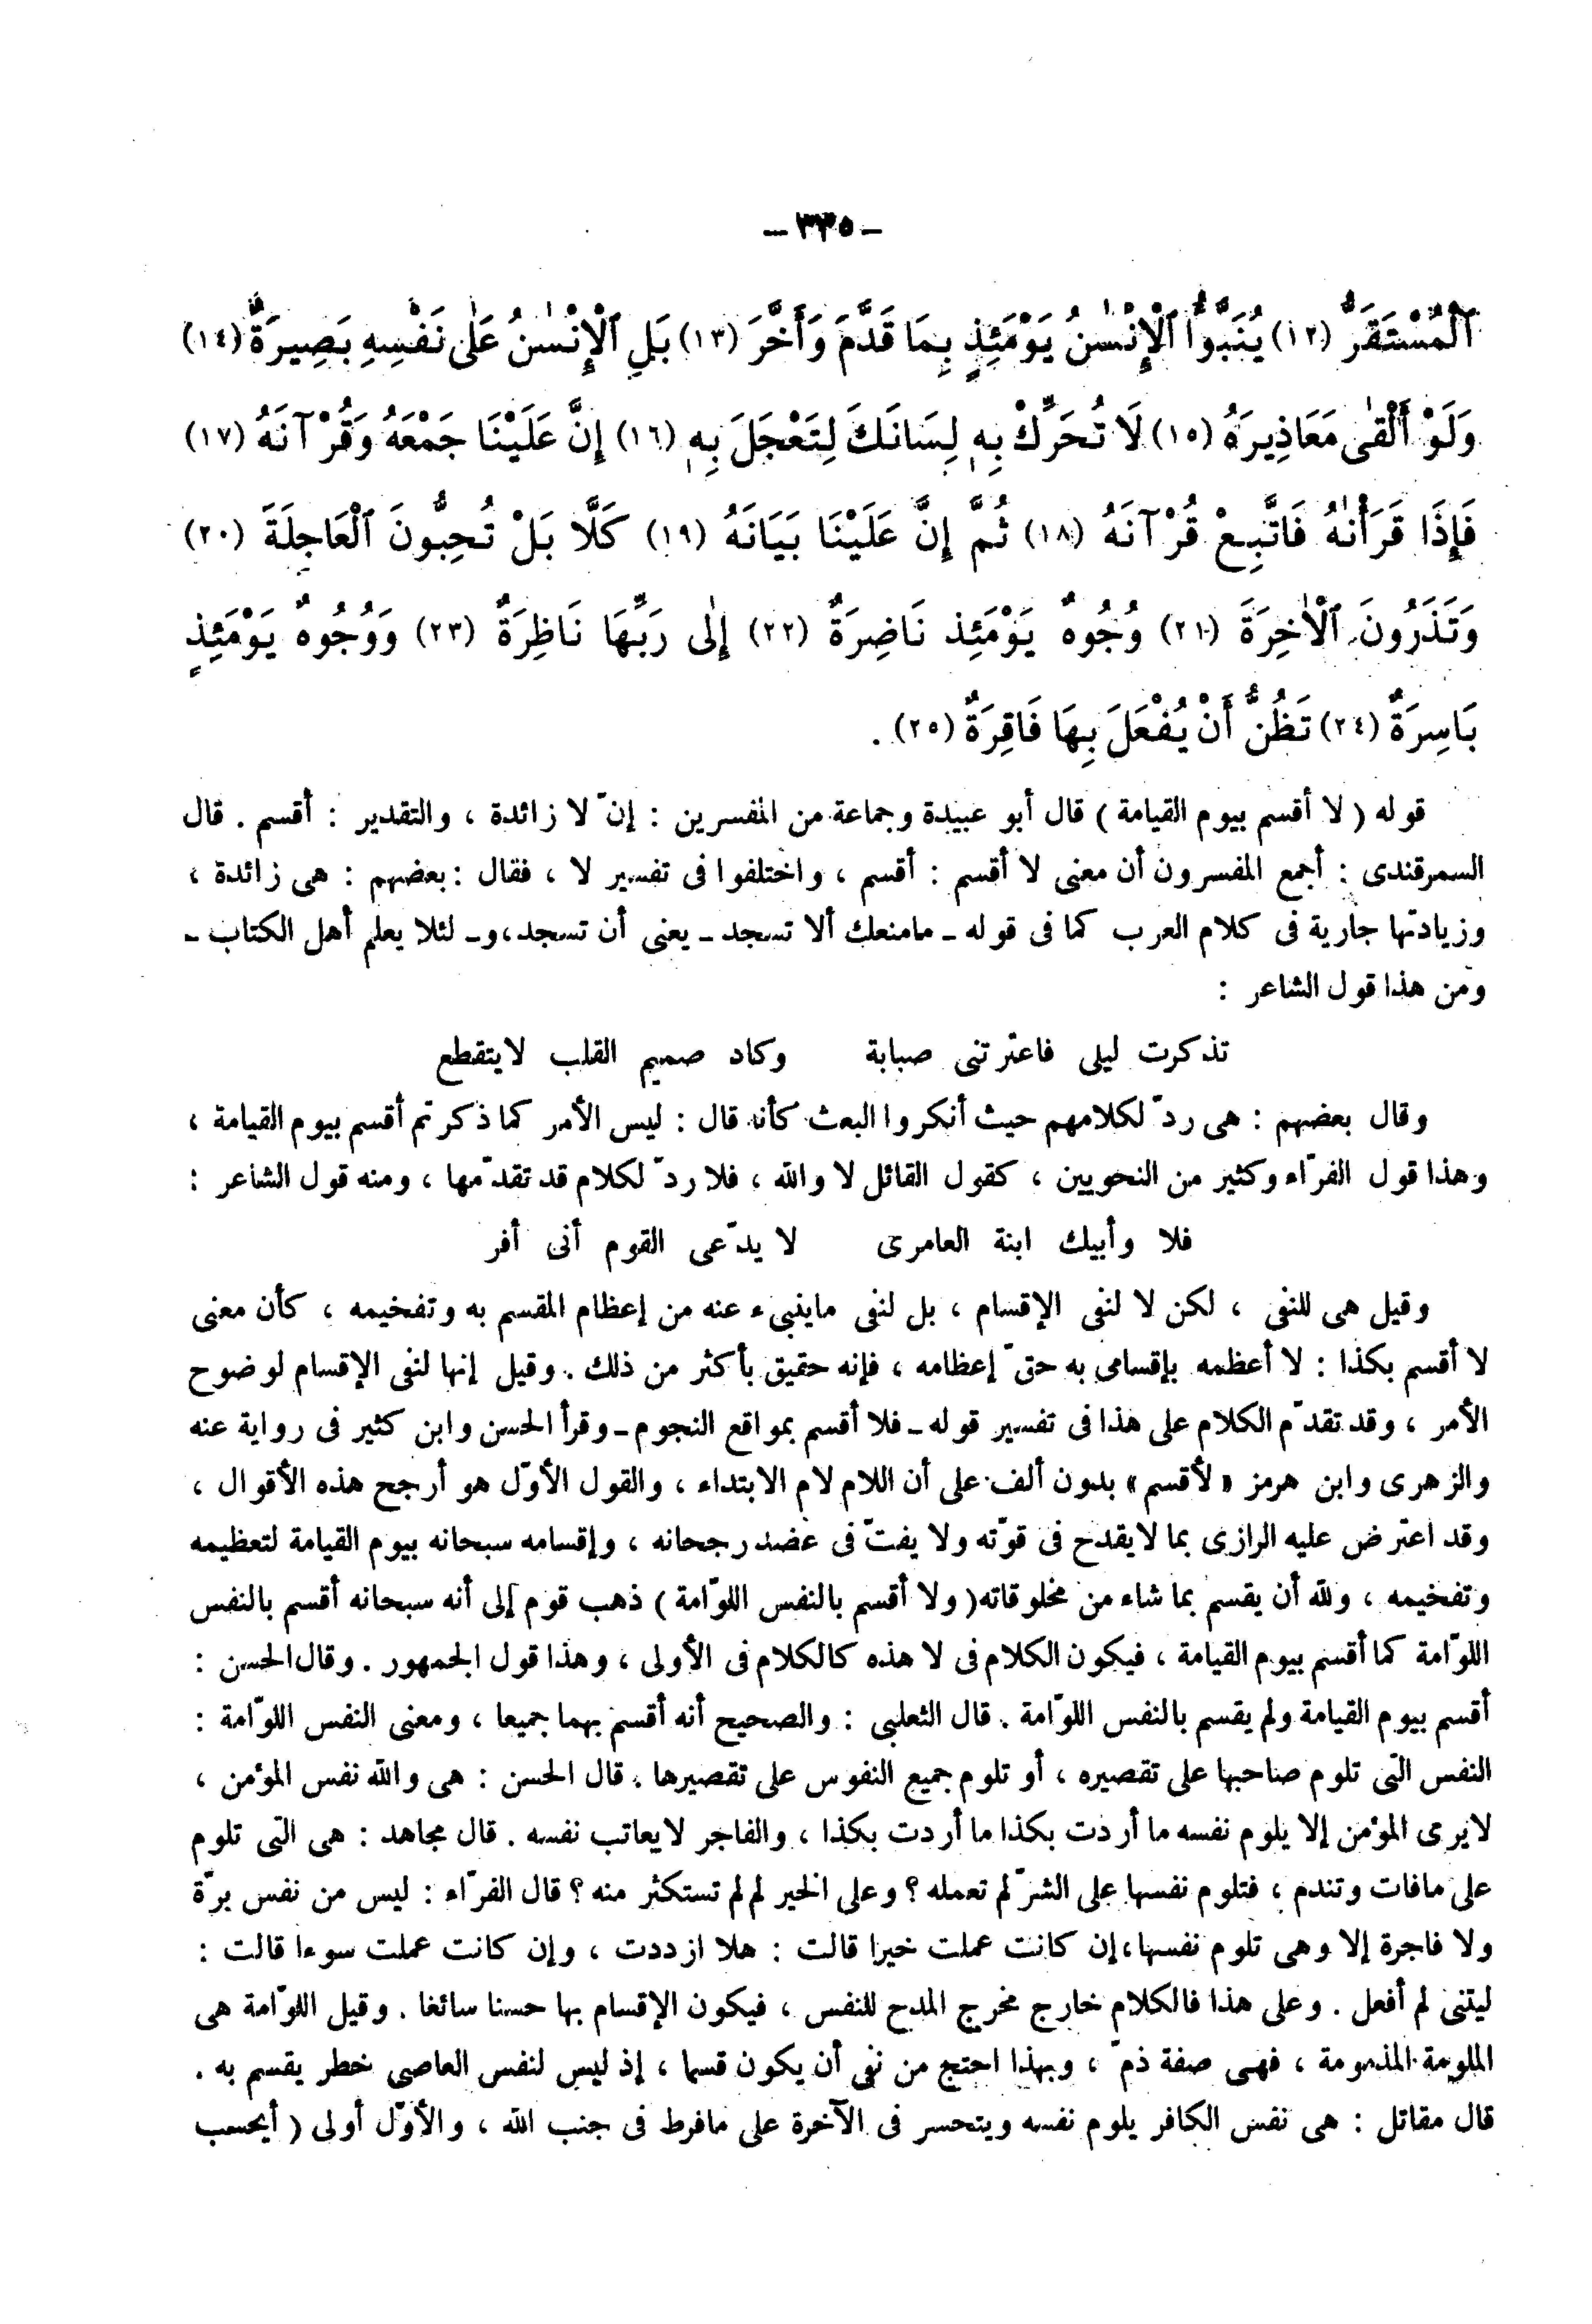 - ٣٣٥ -
ٱلْمُسْتَقَرُّ (١٢) يُنَبَّؤُا ٱلْإِنْسٰنُ يَوْمَئِذٍ بِمَا قَدَّمَ وَأَخَّرَ (١٣) بَلِ ٱلْإِنْسٰنُ عَلٰى نَفْسِهِ بَصِيرَةٌ (١٤)
وَلَوْ أَلْقٰى مَعَاذِيرَهُ (١٥) لَا تُحَرِّكْ بِهِ لِسَانَكَ لِتَعْجَلَ بِهِ (١٦) إِنَّ عَلَيْنَا جَمْعَهُ وَقُرْآنَهُ (١٧)
فَإِذَا قَرَأْنٰهُ فَاتَّبِعْ قُرْآنَهُ (١٨) ثُمَّ إِنَّ عَلَيْنَا بَيَانَهُ (١٩) كَلَّا بَلْ تُحِبُّونَ ٱلْعَاجِلَةَ (٢٠)
وَتَذَرُونَ ٱلْأٰخِرَةَ (٢١) وُجُوهٌ يَوْمَئِذ نَاضِرَةٌ (٢٢) إِلٰى رَبِّهَا نَاظِرَةٌ (٢٣) وَوُجُوهٌ يَوْمَئِذٍ
بَاسِرَةٌ (٢٤) تَظُنُّ أَنْ يُفْعَلَ بِهَا فَاقِرَةٌ (٢٥) .
قوله ( لا أقسم بيوم القيامة ) قال أبو عبيدة وجماعة من المفسرين : إنّ لا زائدة ، والتقدير : أقسم . قال
السمرقندى : أجمع المفسرون أن معنى لا أقسم : أقسم ، واختلفوا فى تفسير لا ، فقال : بعضهم : هى زائدة ،
وزيادتها جارية فى كلام العرب كما فى قوله ـ مامنعك ألا تسجد ـ يعنى أن تسجد ، و ـ لئلا يعلم أهل الكتاب ـ
ومن هذا قول الشاعر :
تذكرت ليلى فاعترتنى صبابة وكاد صميم القلب لايتقطع
وقال بعضهم : هى ردّ لكلامهم حيث أنكروا البعث كأنه قال : ليس الأمر كما ذكرتم أقسم بيوم القيامة ،
وهذا قول الفرّاء وكثير من النحويين ، كقول القائل لا والله ، فلا ردّ لكلام قد تقدّمها ، ومنه قول الشاعر :
فلا وأبيك ابنة العامرى لا يدّعى القوم أنى أفر
وقيل هى للنفى ، لكن لا لنفى الإقسام ، بل لنفى ماينبىء عنه من إعظام المقسم به وتفخيمه ، كأن معنى
لا أقسم بكذا : لا أعظمه بإقسامى به حقّ إعظامه ، فإنه حقيق بأكثر من ذلك . وقيل إنها لنفى الإقسام لوضوح
الأمر ، وقد تقدّم الكلام على هذا فى تفسير قوله ـ فلا أقسم بمواقع النجوم ـ وقرأ الحسن وابن كثير فى رواية عنه
والزهرى وابن هرمز « لأقسم » بدون ألف على أن اللام لام الابتداء ، والقول الأوّل هو أرجح هذه الأقوال ،
وقد اعترض عليه الرازى بما لايقدح فى قوّته ولا يفتّ فى عضد رجحانه ، وإقسامه سبحانه بيوم القيامة لتعظيمه
وتفخيمه ، ولله أن يقسم بما شاء من مخلوقاته ( ولا أقسم بالنفس اللوّامة ) ذهب قوم إلى أنه سبحانه أقسم بالنفس
اللوّامة كما أقسم بيوم القيامة ، فيكون الكلام فى لا هذه كالكلام فى الأولى ، وهذا قول الجمهور . وقال الحسن :
أقسم بيوم القيامة ولم يقسم بالنفس اللوّامة . قال الثعلبى : والصحيح أنه أقسم بهما جميعا ، ومعنى النفس اللوّامة :
النفس التى تلوم صاحبها على تقصيره ، أو تلوم جميع النفوس على تقصيرها . قال الحسن : هى والله نفس المؤمن ،
لايرى المؤمن إلا يلوم نفسه ما أردت بكذا ما أردت بكذا ، والفاجر لايعاتب نفسه . قال مجاهد : هى التى تلوم
على مافات وتندم ، فتلوم نفسها على الشرّ لم تعمله ؟ وعلى الخير لم لم تستكثر منه ؟ قال الفرّاء : ليس من نفس برّة
ولا فاجرة إلا وهى تلوم نفسها ، إن كانت عملت خيرا قالت : هلا ازددت ، وإن كانت عملت سوءا قالت :
ليتنى لم أفعل . وعلى هذا فالكلام خارج مخرج المدح للنفس ، فيكون الإقسام بها حسنا سائغا . وقيل اللوّامة هى
الملومة المذمومة ، فهى صفة ذمّ ، وبهذا احتج من نفى أن يكون قسما ، إذ ليس لنفس العاصى خطر يقسم به .
قال مقاتل : هى نفس الكافر يلوم نفسه ويتحسر فى الآخرة على مافرط فى جنب الله ، والأوّل أولى ( أيحسب